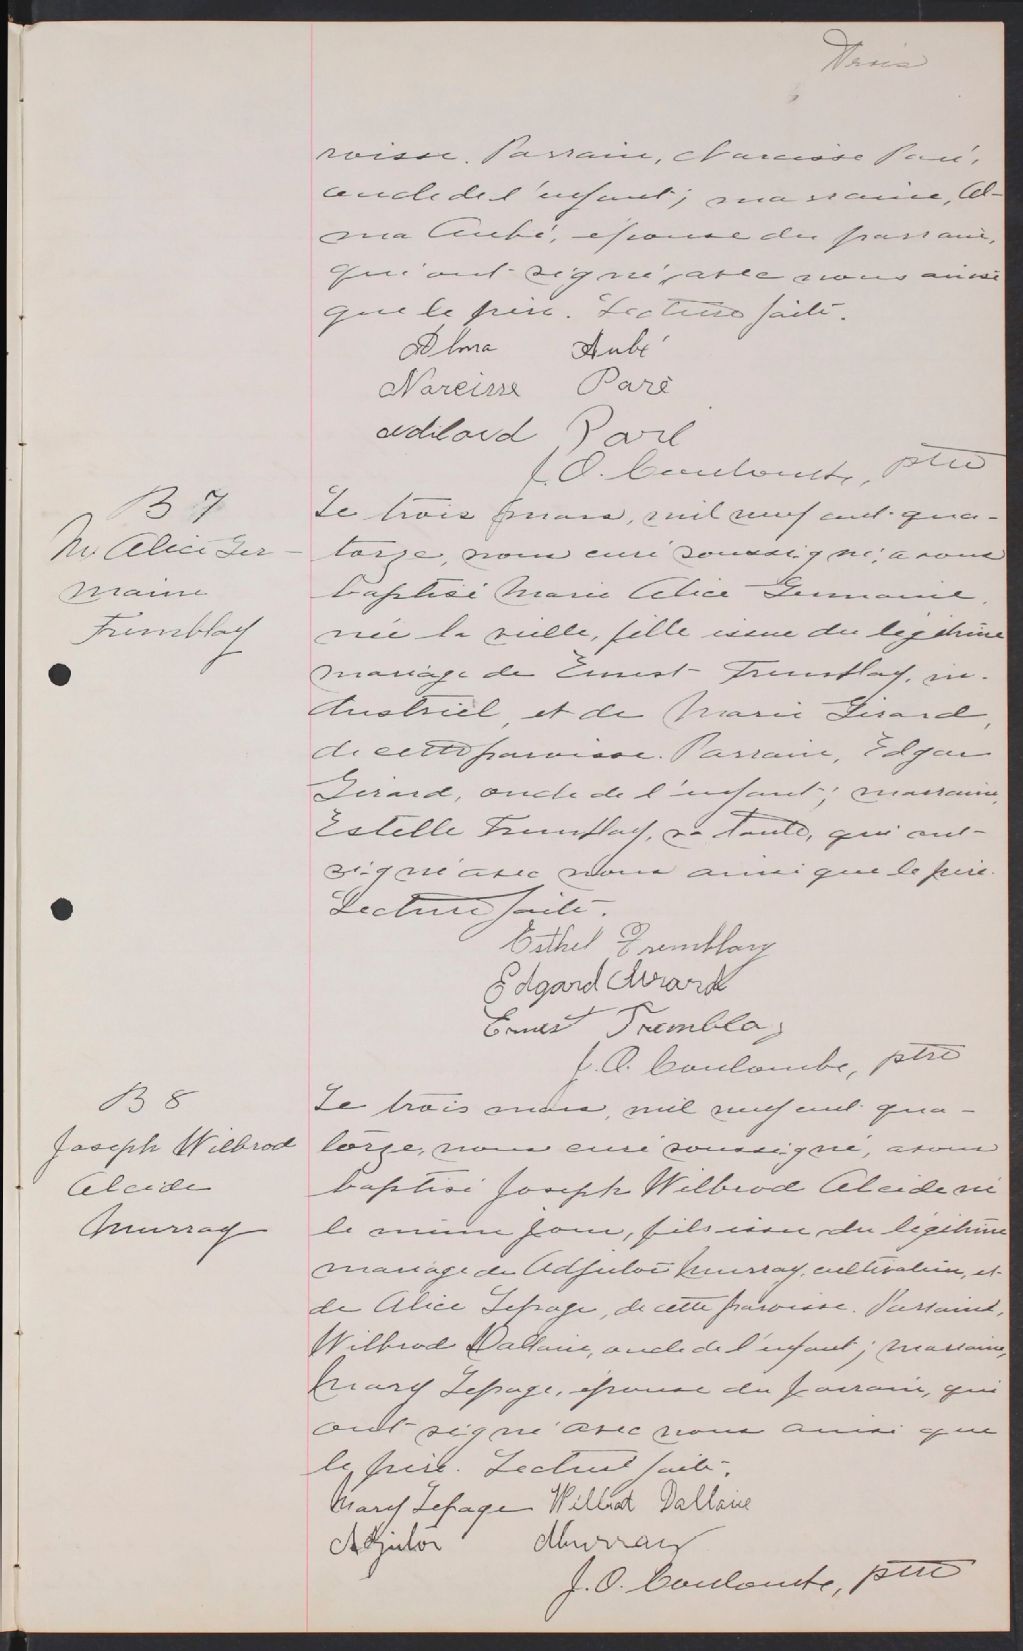 Trois
roisse. Parrain, Narcisse Paré,
oncle de l'enfant; marraine, Al-
ma Aubé, épouse du parrain,
qui ont signé, avec nous ainsi
que le père. Lecture faite.
Alma Aubé
Narcisse Paré
Adilard Paré
J. O. Coulombe, ptre
B 7
M. Alice Ger-
maine
Tremblay
Le trois mars, mil neuf cent qua-
torze, nous curé soussigné, avons
baptisé Marie Alice Germaine,
née la veille, fille issue du légitime
mariage de Ernest Tremblay, in-
dustriel, et de Marie Girard,
de cette paroisse. Parrain, Edgar
Girard, oncle de l'enfant; marraine,
Estelle Tremblay, sa tante, qui ont
signé avec nous ainsi que le père.
Lecture faite.
Esthel Tremblay
Edgard Girard
Ernest Tremblay
J. O. Coulombe, ptre
B 8
Joseph Wilbrod
Alcide
Murray
Le trois mars, mil neuf cent qua-
torze, nous curé soussigné, avons
baptisé Joseph Wilbrod Alcide né
le même jour, fils issu du légitime
mariage de Adjutor Murray, cultivateur, et
de Alice Lepage, de cette paroisse. Parrain,
Wilbrod Dallaire, oncle de l'enfant; marraine,
Mary Lepage, épouse du parrain, qui
ont signé avec nous ainsi que
le père. Lecture faite.
Mary Lepage Wilbrod Dallaire
Adjutor Murray
J. O. Coulombe, ptre